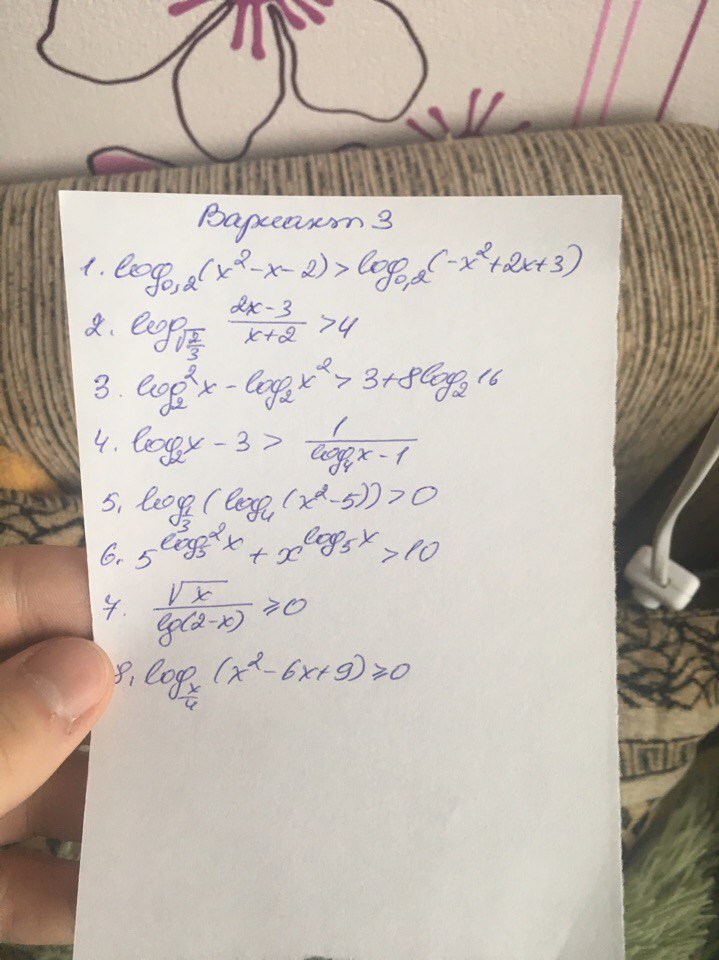 Вариант 3
1. log₀,₂(x²-x-2)>log₀,₂(-x²+2x+3)
2. log_√(2/3) (2x-3)/(x+2) >4
3. log₂²x-log₂x²>3+8log₂16
4. log₂x-3> 1/(log₄x-1)
5. log_(1/3)(log₄(x²-5))>0
6. 5^(log₅²x)+x^(log₅x)>10
7. √x/lg(2-x) ≥0
8. log_(x/4)(x²-6x+9)≥0